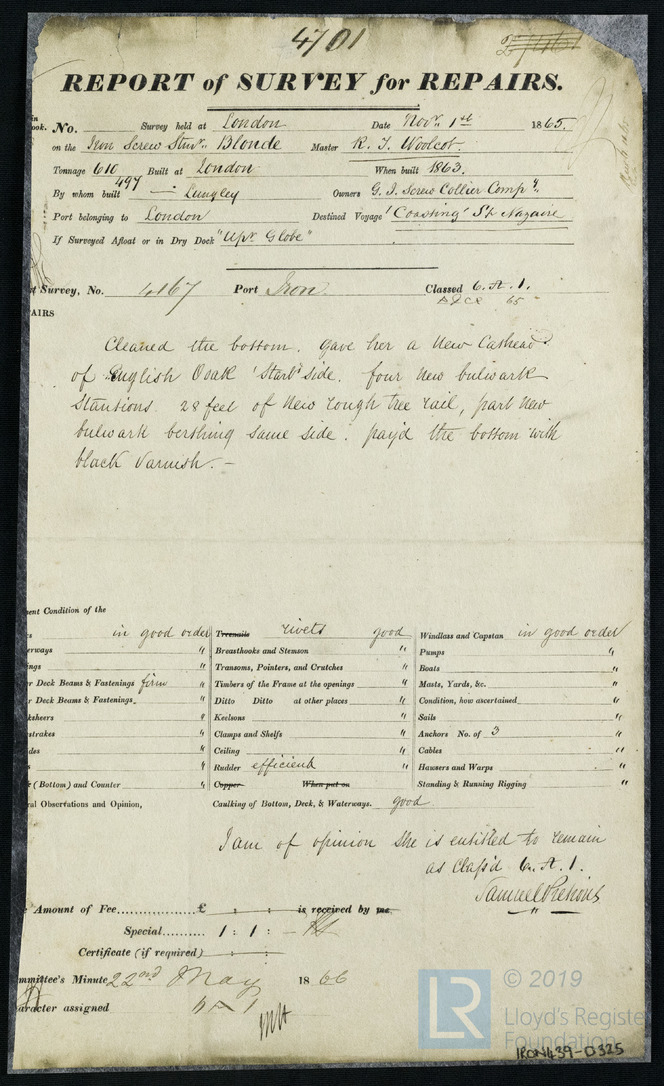 4701
REPORT of SURVEY for REPAIRS.
in
ook. No. Survey held at London Date Novr. 1st 1865.
on the Iron Screw Stmr. Blonde Master R. T. Woolcot.
Tonnage 610 Built at London When built 1863.
497
By whom built Lungley Owners G. I. Screw Collier Compy.
Port belonging to London Destined Voyage 'Coasting' St. Nazaire
If Surveyed Afloat or in Dry Dock "Upr. Globe"
t Survey, No. 4167 Port Iron. Classed 6.A.1.
65
AIRS
Cleaned the bottom. gave her a New Cathead
of English Ooak 'Starbd side. four New bulwark
Stantions. 28 feet of New rough tree rail, part New
bulwark berthing same side. pay'd the bottom with
black Varnish. -
ent Condition of the
s in good order Treenails rivets good Windlass and Capstan in good order
erways " Breasthooks and Stemson " Pumps "
ings " Transoms, Pointers, and Crutches " Boats "
r Deck Beams & Fastenings firm Timbers of the Frame at the openings " Masts, Yards, &c. "
r Deck Beams & Fastenings " Ditto Ditto at other places " Condition, how ascertained "
ksheers " Keelsons " Sails "
strakes " Clamps and Shelfs " Anchors No. of 3
des " Ceiling " Cables "
s " Rudder efficient Hawsers and Warps "
k (Bottom) and Counter " Copper When put on Standing & Running Rigging "
ral Observations and Opinion, Caulking of Bottom, Deck, & Waterways. good
I am of opinion she is entitled to remain
as Class'd 6.A.1.
e Amount of Fee............£ : : is received by me.
Special.......... 1 : 1 : -
Certificate (if required) : :
mmittee's Minute 22nd May 1866
aracter assigned
LR © 2019
Lloyd's Register
Foundation
IRON439-0325